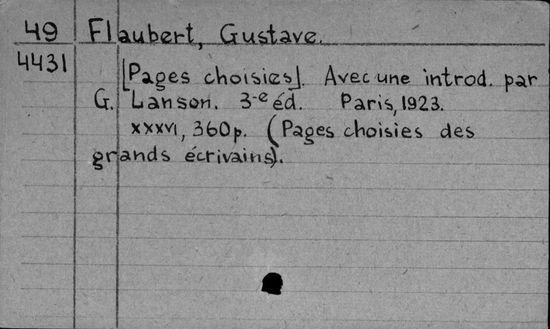 49 Flaubert, Gustave.
4431
[Pages choisies]. Avec une introd. par
G. Lanson. 3-e éd. Paris, 1923.
XXXVI, 360p. (Pages choisies des
grands écrivains).